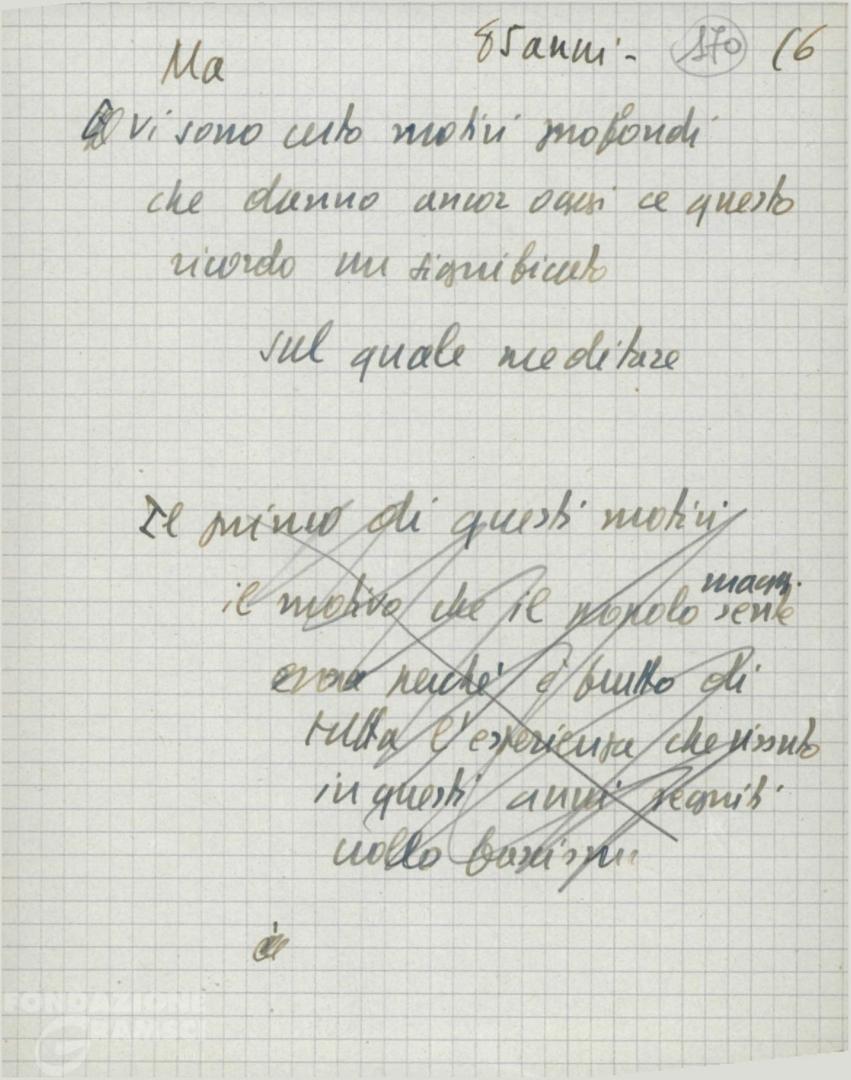 85 anni - 170 (6
Ma
vi sono certo motivi profondi
che danno ancor oggi a questo
ricordo un significato
sul quale meditare
Il primo di questi motivi
il motivo che il popolo sente
magg.
ora perché è frutto di
tutta l'esperienza che vissuto
in questi anni seguiti
crollo fascismo
è
FONDAZIONE
GRAMSCI